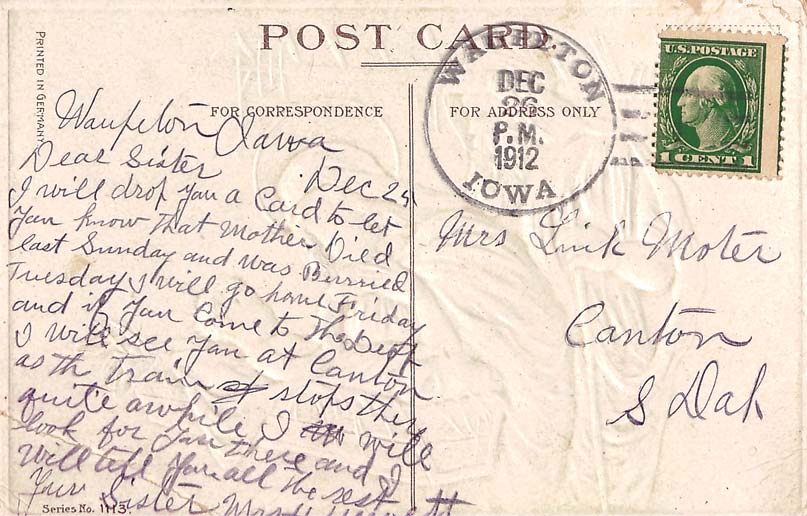 POST CARD
PRINTED IN GERMANY
FOR CORRESPONDENCE
FOR ADDRESS ONLY
DEC
26
P.M.
1912
IOWA
U.S. POSTAGE
1 CENT 1
Waupeton Iawa
Dec 24
Dear Sister
I will drop you a Card to let
you know that Mother Died
last Sunday and was Burried
Tuesday I will go home Friday
and if you Come to the
I will see you at Canton
as th Train stops ther
quite awhile I will
look for you there and I
will tell you all the rest
Your Sister Mrs
Mrs Link Moter
Canton
S Dak
Series No. 1113.